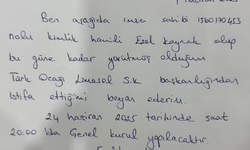 Ben aşağıda imza sahibi 1560170453
nolu kimlik hamili Esel Kaynak olup
bu güne kadar yürütmüş olduğum
Türk Ocağı Limasol S.K başkanlığından
İstifa ettiğimi beyan ederim.
24 haziran 2025 tarihinde saat
20:00 'da Genel kurul yapılacaktır.